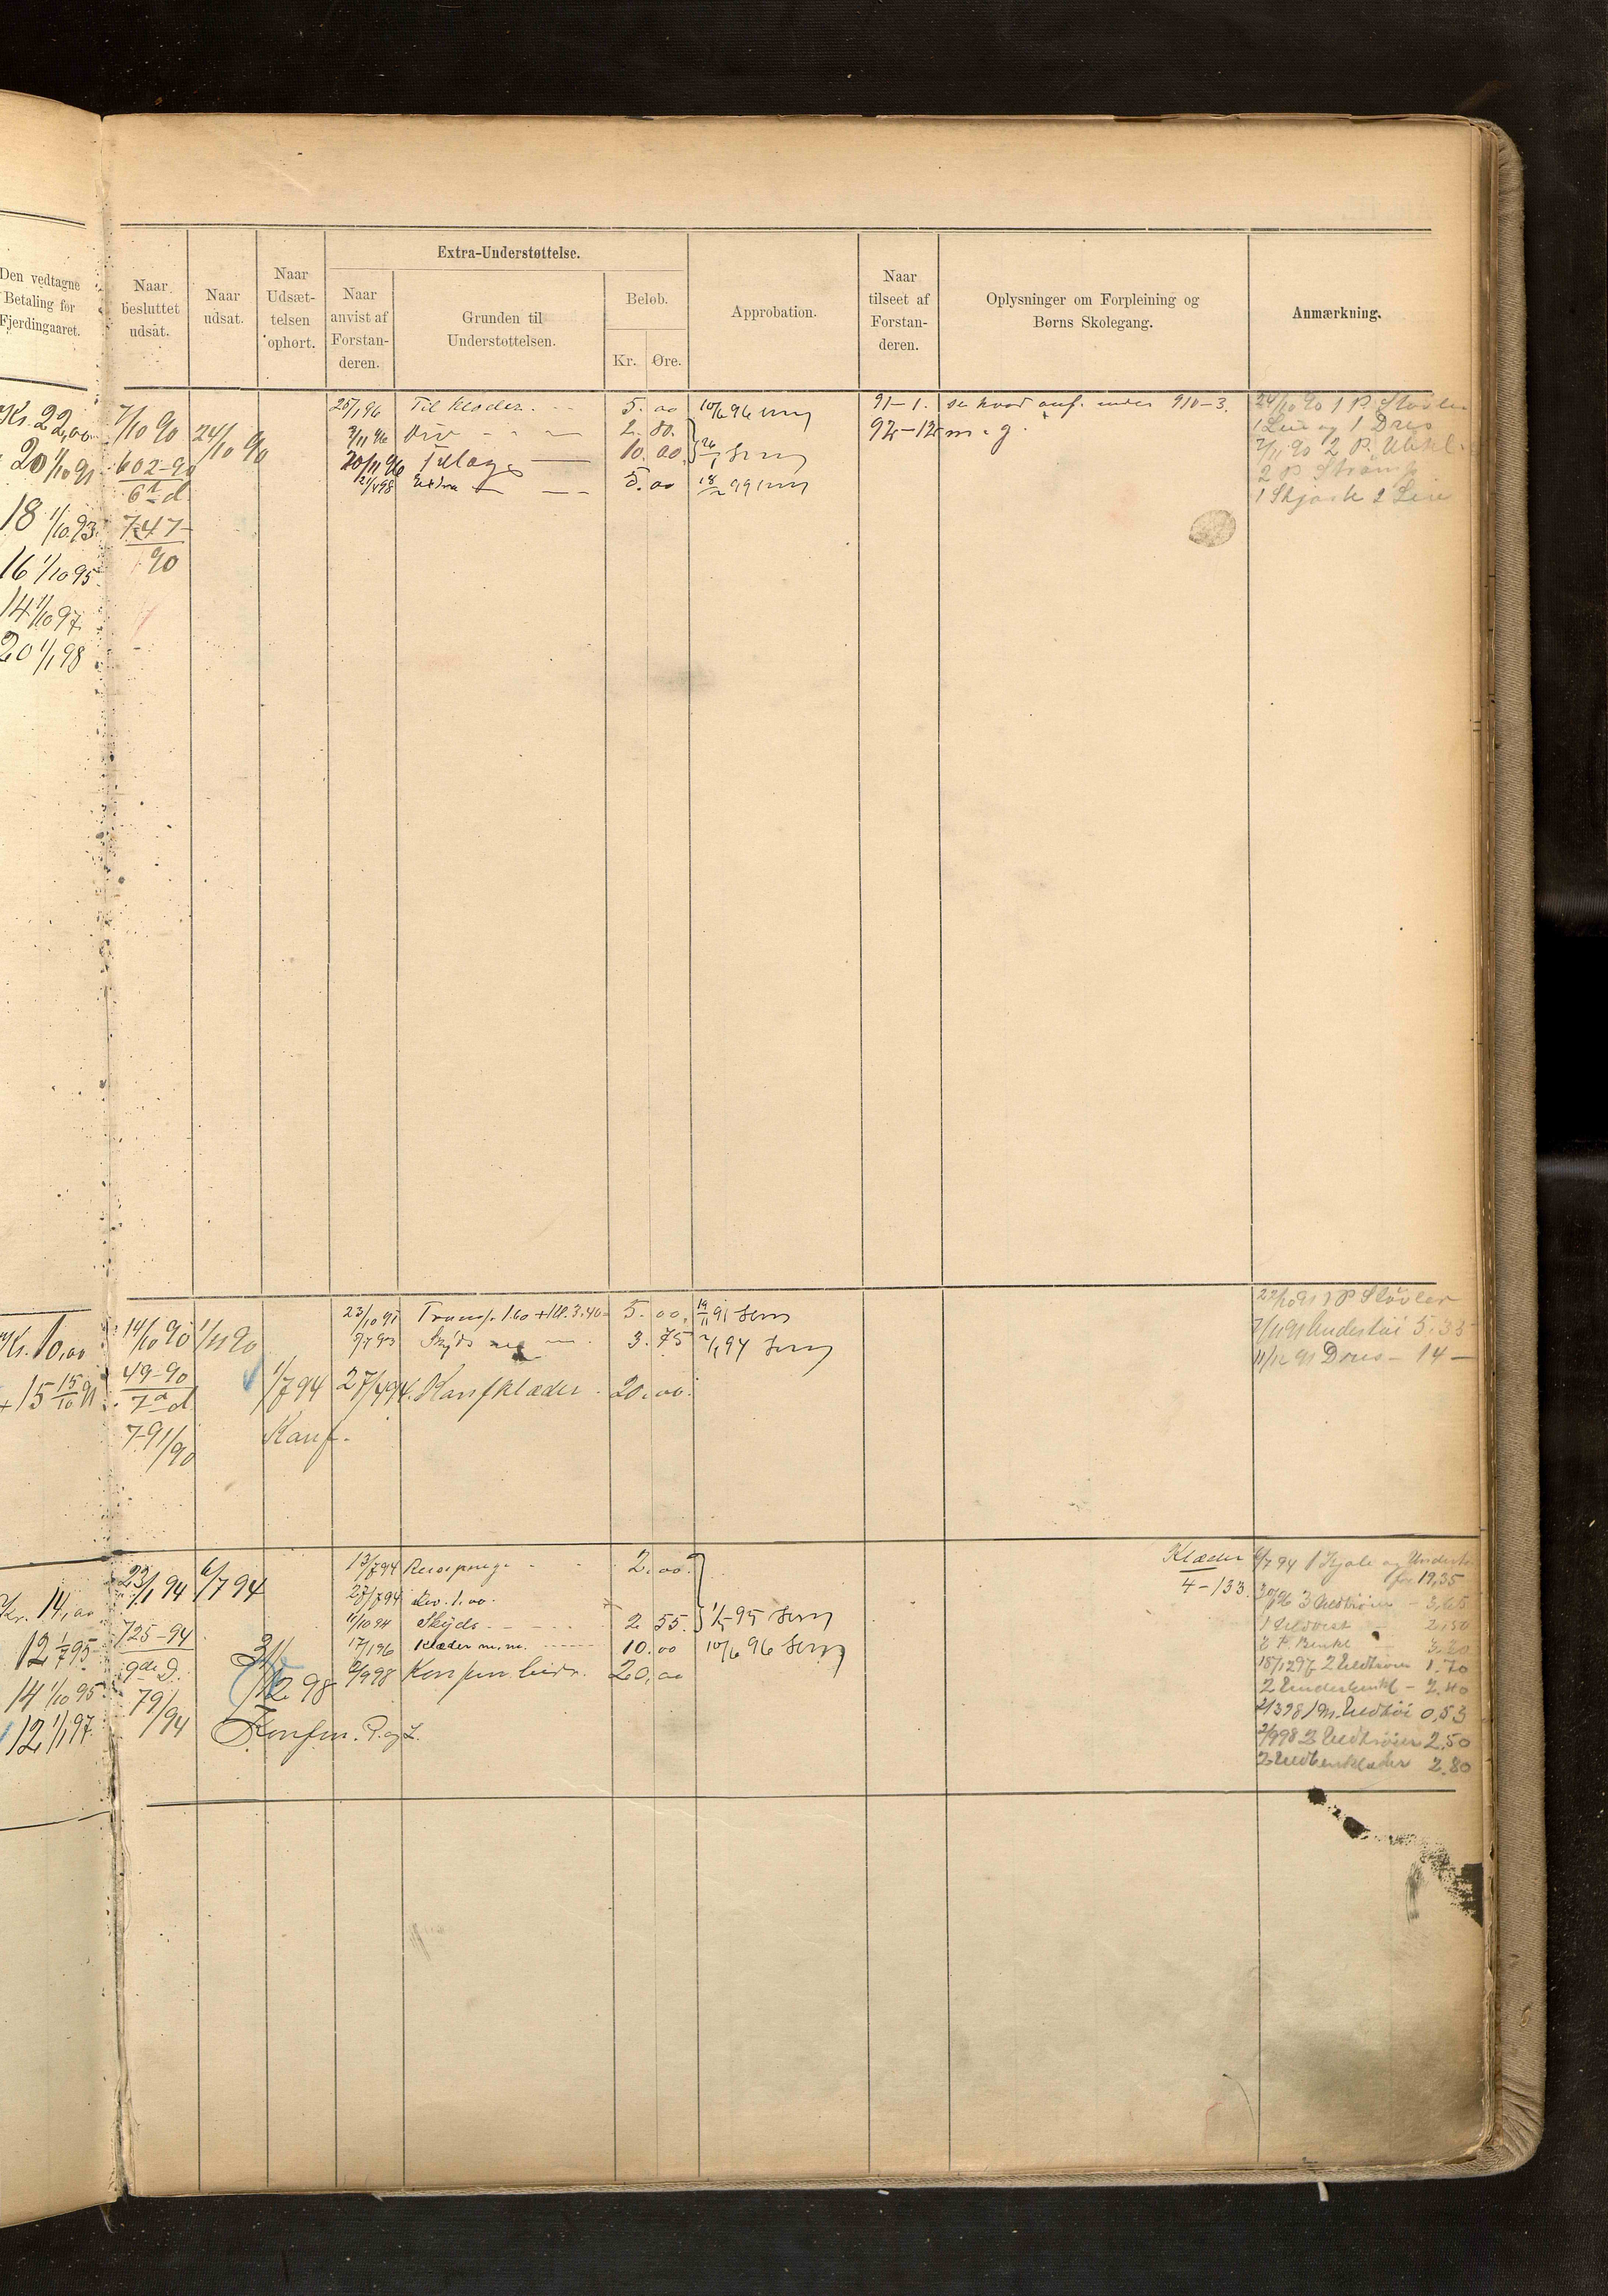 Den vedtagne
Betaling for
Fjerdingaaret.
Naar
besluttet
udsat.
Naar
udsat.
Naar
Udsæt-
telsen
ophørt.
Extra-Understøttelse.
Naar
anvist af
Forstan-
deren.
Grunden til
Understøttelsen.
Beløb.
Kr. Øre.
Approbation.
Naar
tilseet af
Forstan-
deren.
Oplysninger om Forpleining og
Børns Skolegang.
Anmærkning.
Kr. 22,00
20 1/10 91
18 1/10 93
16 1/10 95
14 1/10 97
20 1/1 98
7/10 90
602-90
6te d
747
90
24/10 90
25/1 96 Til klæder. 5.00 10/6 96
3/11 96 Div 2.80.
20/11 96 Tillæg 10.00
21/4 98 Extra 5.00
91-1. se hvad anf. under 910-3.
92-12 m. g.
24/10 90 1 P. Støvler
1 Lue og 1 Dres
7/11 90 2 P.
2 P Strømp
1 Skjorte 2
Kr. 10,00
+15 15/10 91
14/10 90
49-90
7de d
791/90
1/11 90
1/7 94
Konf.
23/10 91 Transp. 1.60 + Kl. 3.40 = 5.00
Skyds 3.75 94
27/4 94. Konfklæder. 20.00.
22/10 91 1 P Støvler
7/11 91 Undertøi 5,35
11/12 91 Dres - 14 -
Kr. 14,00
12 1/7 95
14 1/10 95
12 1/1 97.
23/1 94
125-94
9de D.
79/94
6/7 94
98
Konfm. P. og L.
13/7 94 Reisepenge 2.00.
27/7 94 div. 1.00.
11/10 94 Skyds 2.55. 95
17/1 96 Klæder m.m. 10.00 10/6 96
2/9 98 Konfm. bidr. 20,00
Klæder
4-133.
6/7 94 1 Kjole og Undert.
for 19,35
3 Uldtrøier - 3,65
1 Uldvest 2,50
2 P. Benkl 3,20
15/12 97 2 Uldtrøier 1.70
2 Underbenkl - 2.40
1 m. Uldtøi 0,53
2/9 98 2 Uldtrøier 2,50
2 Uldbenklæder 2.80